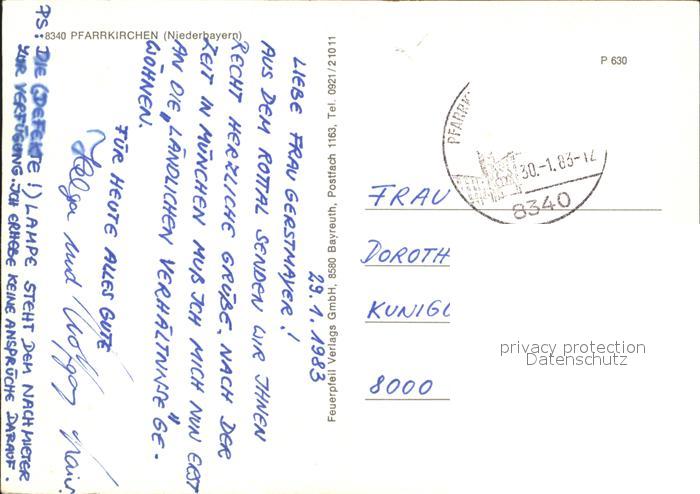 8340 PFARRKIRCHEN (Niederbayern)
29.1.1983
LIEBE FRAU GERSTMAYER!
AUS DEM ROTTAL SENDEN WIR IHNEN
RECHT HERZLICHE GRÜßE. NACH DER
ZEIT IN MÜNCHEN MUß ICH MICH NUN ERST
AN DIE „LÄNDLICHEN VERHÄLTNISSE" GE-
WÖHNEN.
FÜR HEUTE ALLES GUTE
Helga und Wolfgang
PS: DIE (DEFEKTE!) LAMPE STEHT DEM NACHMIETER
ZUR VERFÜGUNG. ICH ERHEBE KEINE ANSPRÜCHE DARAUF.
Feuerpfeil Verlags GmbH, 8580 Bayreuth, Postfach 1163, Tel. 0921/21011
P 630
PFARRK
30.-1.83-12
8340
FRAU
DOROTH
KUNIGL
8000
privacy protection
Datenschutz